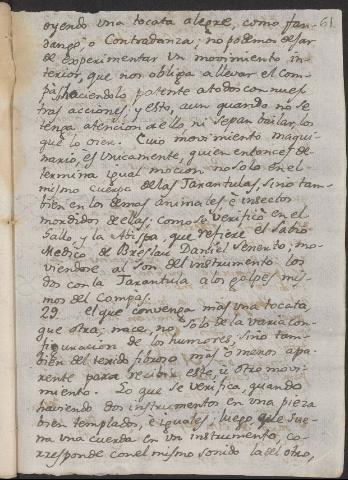 61
oyendo una tocata alegre, como fan-
dango, o Contradanza; no podemos dejar
de experimentar un movimiento in-
terior, que nos obliga a llevar el com-
pas, haciendolo patente a todos con nues-
tras acciones; y esto, aun quando no se
tenga atencion a ello, ni sepan bailar los
que lo oien. Cuio movimiento maqui-
nario, es unicamente, quien entonces de-
termina igual mocion no solo en el
mismo cuerpo de las Tarantulas, sino tam-
bien en los demas animales, è insectos
mordidos de ellas; como se verificò en el
Gallo, y la Abispa, que refiere el Sabio
Medico de Breslau Daniel Senerto; mo-
viendose al son del instrumento los
dos con la Tarantula a los golpes mis-
mos del Compas.
29 el que convenga mas una tocata,
que otra; nace, no solo de la varia con-
figuracion de los humores, sino tam-
bien del texido fibroso mas, o menos apa-
rente para recibir este, ù otro movi-
miento. Lo que se verifica, quando
haviendo dos instrumentos en una pieza
bien templados, è iguales, luego que sue-
na una cuerda en un instrumento, co-
rresponde con el mismo sonido la del otro,